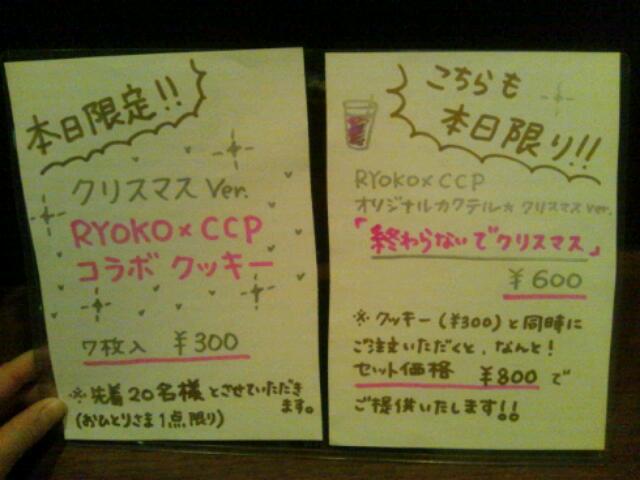 本日限定!!
クリスマス Ver.
RYOKO×CCP
コラボ クッキー
7枚入 ¥300
※先着20名様とさせていただき
ます。
(おひとりさま1点限り)
こちらも
本日限り!!
RYOKO×CCP
オリジナルカクテル☆クリスマスver.
「終わらないでクリスマス」
¥600
※クッキー(¥300)と同時に
ご注文いただくと、なんと!
セット価格 ¥800で
ご提供いたします!!